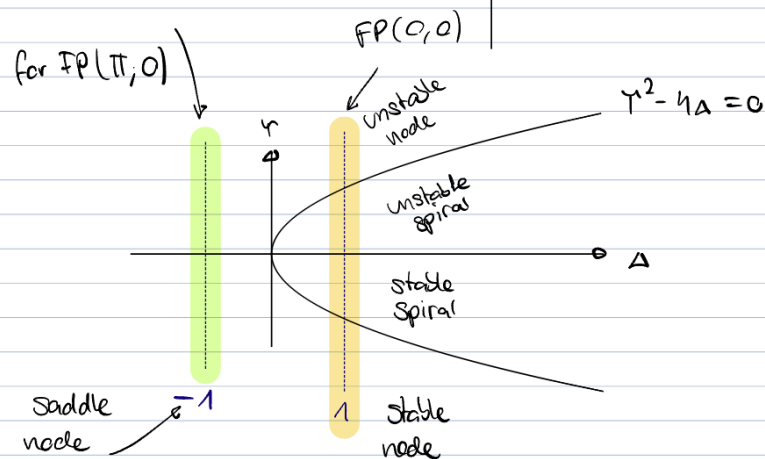 FP(0,0)
for FP(π,0)
unstable
node
τ
τ² - 4Δ = 0
unstable
spiral
Δ
stable
spiral
-1
1
saddle
node
stable
node